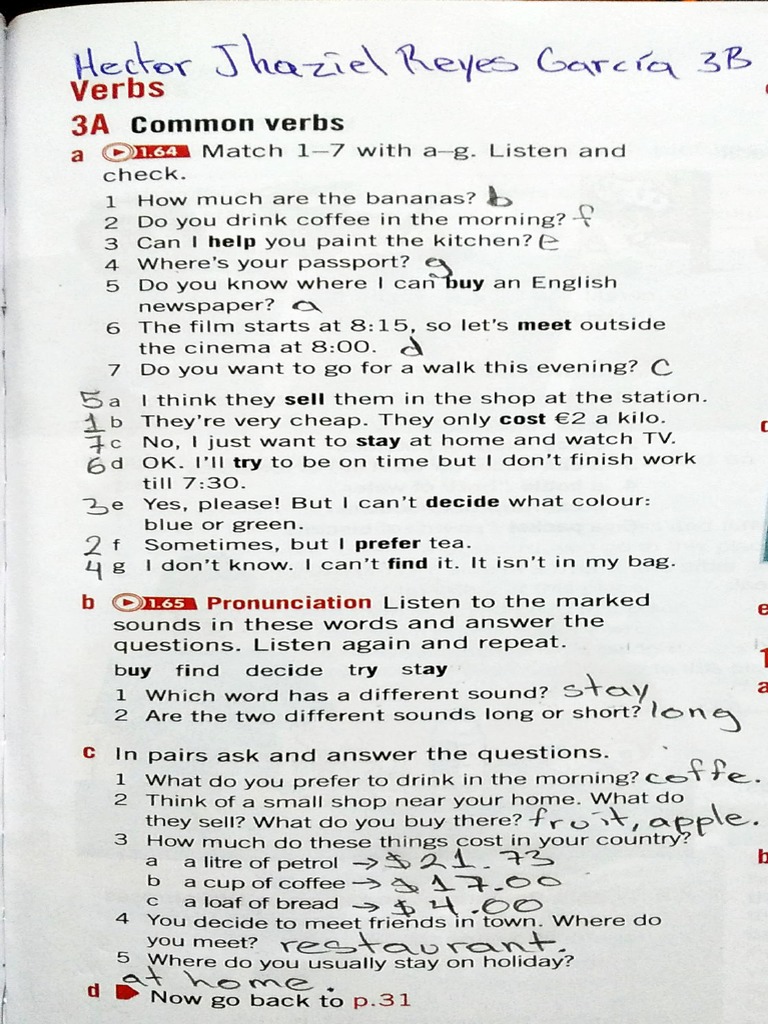 Hector Jhaziel Reyes García 3B
Verbs
3A Common verbs
a 1.64 Match 1–7 with a–g. Listen and
check.
1 How much are the bananas? b
2 Do you drink coffee in the morning? f
3 Can I help you paint the kitchen? e
4 Where's your passport? g
5 Do you know where I can buy an English
newspaper? a
6 The film starts at 8:15, so let's meet outside
the cinema at 8:00. d
7 Do you want to go for a walk this evening? C
5 a I think they sell them in the shop at the station.
1 b They're very cheap. They only cost €2 a kilo.
7 c No, I just want to stay at home and watch TV.
6 d OK. I'll try to be on time but I don't finish work
till 7:30.
3 e Yes, please! But I can't decide what colour:
blue or green.
2 f Sometimes, but I prefer tea.
4 g I don't know. I can't find it. It isn't in my bag.
b 1.65 Pronunciation Listen to the marked
sounds in these words and answer the
questions. Listen again and repeat.
buy find decide try stay
1 Which word has a different sound? stay
2 Are the two different sounds long or short? long
c In pairs ask and answer the questions.
1 What do you prefer to drink in the morning? coffe.
2 Think of a small shop near your home. What do
they sell? What do you buy there? fruit, apple.
3 How much do these things cost in your country?
a a litre of petrol → $21.73
b a cup of coffee → $17.00
c a loaf of bread → $4.00
4 You decide to meet friends in town. Where do
you meet? restaurant.
5 Where do you usually stay on holiday?
at home.
d Now go back to p.31